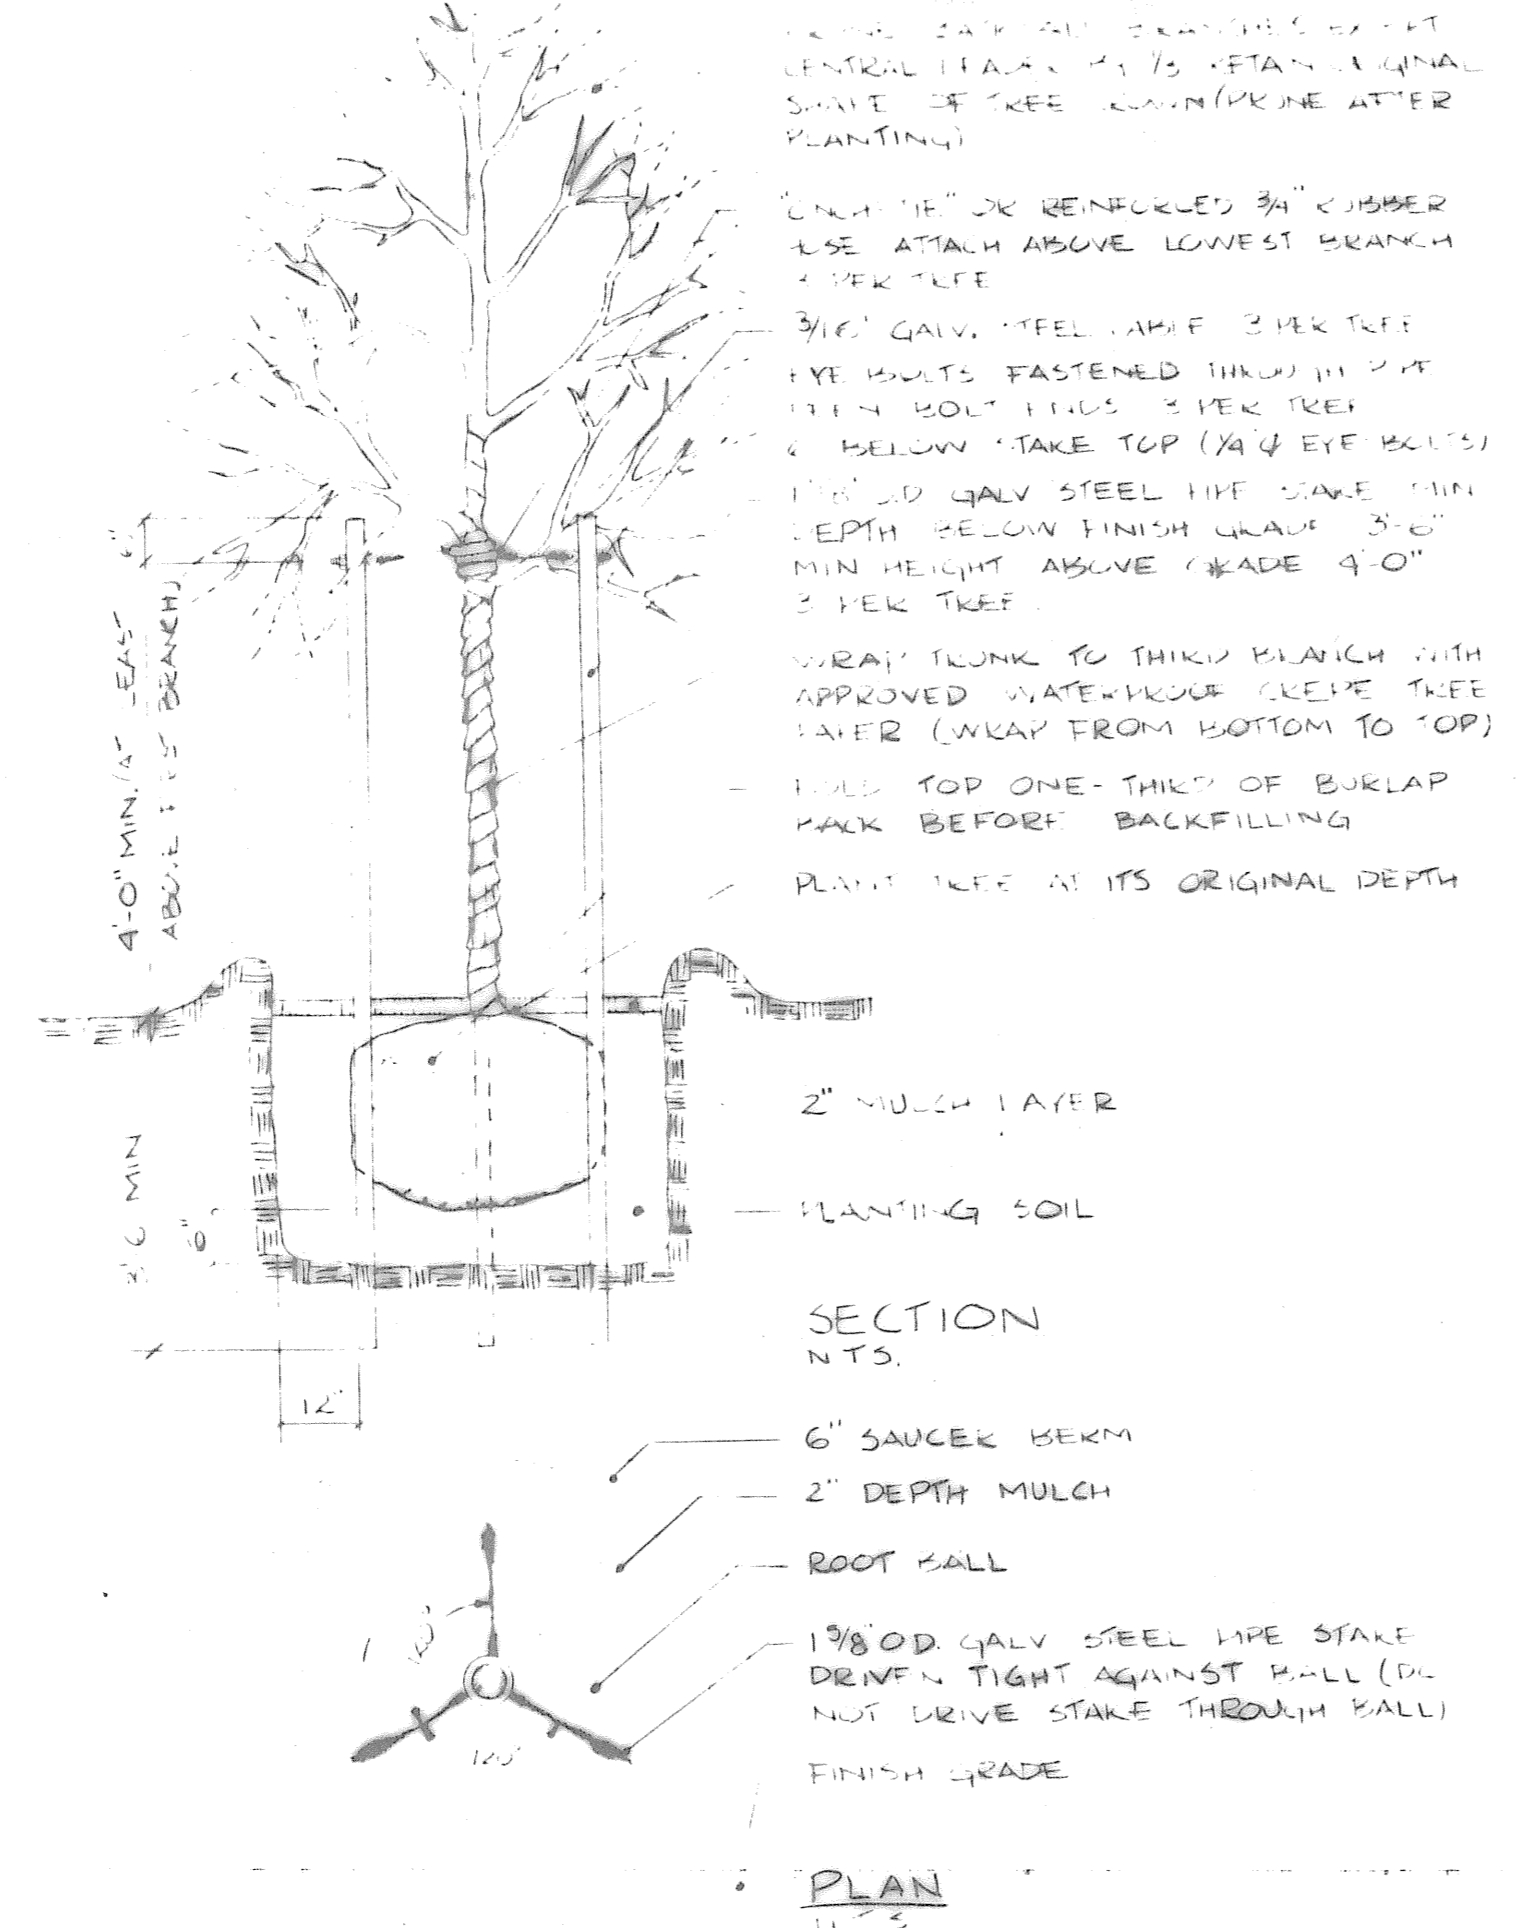 CENTRAL LEADER BY 1/3 RETAIN ORIGINAL
SHAPE OF TREE CROWN (PRUNE AFTER
PLANTING)
OR REINFORCED 3/4" RUBBER
HOSE ATTACH ABOVE LOWEST BRANCH
3 PER TREE
3/16" GALV. STEEL CABLE 3 PER TREE
EYE BOLTS FASTENED THROUGH PIPE
BOLT ENDS 3 PER TREE
BELOW STAKE TOP (1/4" φ EYE BOLTS)
O.D. GALV STEEL PIPE STAKE MIN
DEPTH BELOW FINISH GRADE 3'-6"
MIN HEIGHT ABOVE GRADE 4'-0"
3 PER TREE
WRAP TRUNK TO THIRD BRANCH WITH
APPROVED WATERPROOF CREPE TREE
(WRAP FROM BOTTOM TO TOP)
FOLD TOP ONE-THIRD OF BURLAP
BACK BEFORE BACKFILLING
PLANT TREE AT ITS ORIGINAL DEPTH
6"
4'-0" MIN. (AT LEAST
ABOVE FIRST BRANCH)
2" MULCH LAYER
MIN
6"
PLANTING SOIL
SECTION
N.T.S.
12"
6" SAUCER BERM
2" DEPTH MULCH
ROOT BALL
1 5/8" O.D. GALV STEEL PIPE STAKE
DRIVEN TIGHT AGAINST BALL (DO
NOT DRIVE STAKE THROUGH BALL)
120°
FINISH GRADE
PLAN